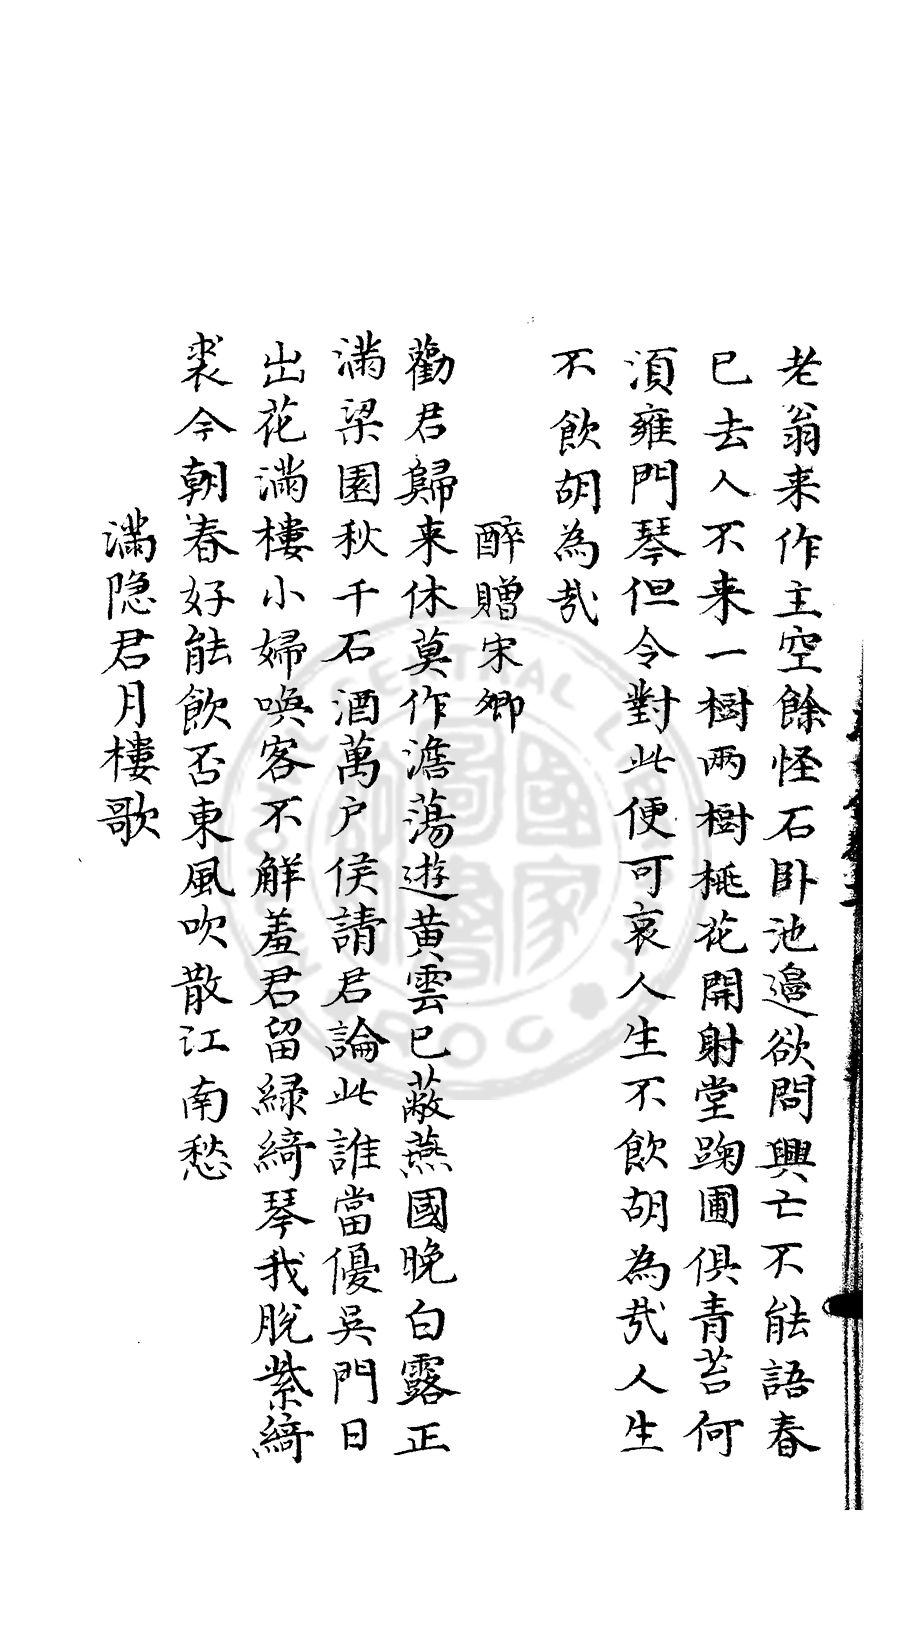 老翁来作主空餘怪石卧池邉欲問興亡不能語春
已去人不来一樹兩樹桃花開射堂踘圃俱青苔何
湏雍門琴但令對此便可哀人生不飲胡為哉人生
不飲胡為哉
醉贈宋卿
勸君歸来休莫作澹蕩遊黄雲已蔽燕國晚白露正
滿梁園秋千石酒萬户侯請君論此誰當優吳門日
出花滿樓小婦喚客不解羞君留緑綺琴我脱紫綺
裘今朝春好能飲否東風吹散江南愁
滿隐君月樓歌